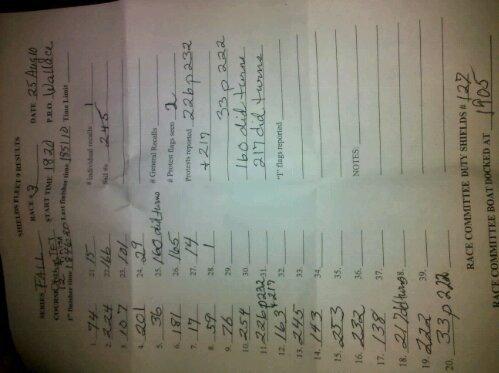 SHIELDS FLEET 9 RESULTS
SERIES FALL RACE # 3 DATE 25 Aug 10
COURSE START TIME 1820 P.R.O. Wallace
1st finisher time 1846:20 Last finisher time 1851:10 Time Limit
1. 74 21. 15 # Individual recalls 1
2. 224 22. 166 Sail #s 245
3. 107 23. 101
4. 201 24. 29 # General Recalls
5. 36 25. 160 did turns # Protest flags seen 2
6. 181 26. 165 Protests reported 226 p 232
7. 17 27. 14 + 217
8. 59 28. 1 33 p 222
9. 76 29.
10. 254 30. 160 did turns
11. 226 p 232 + 217 31. 217 did turns
12. 163 32. "I" flags reported
13. 245 33.
14. 143 34.
15. 253 35.
16. 232 36. NOTES:
17. 138 37.
18. 217 38.
19. 222 39.
20. 33 p 222
RACE COMMITTEE DUTY SHIELDS # 127
RACE COMMITTEE BOAT DOCKED AT 1905